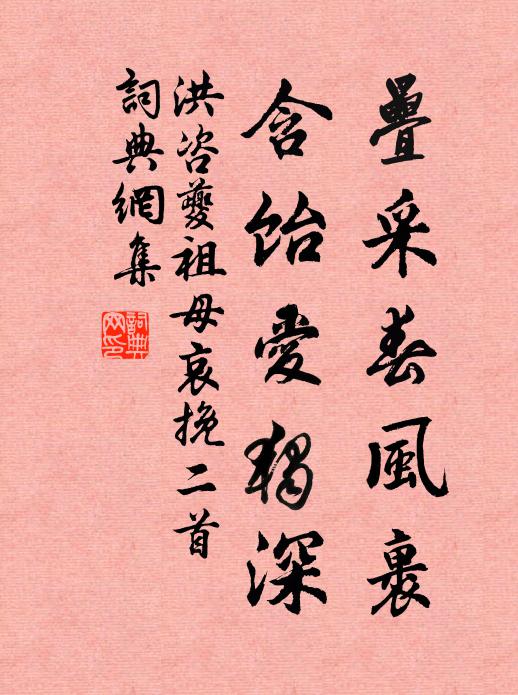 疊采春風裏
含飴愛獨深
洪咨夔祖母哀挽二首
詞典網集
詞典網印